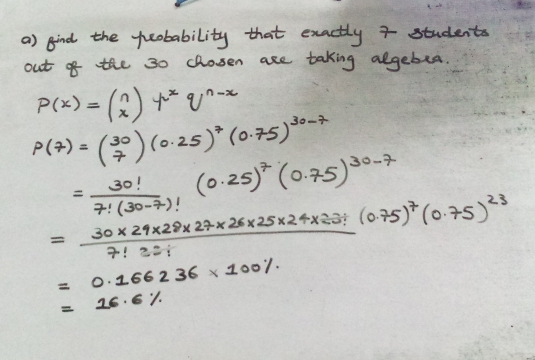 a) find the probability that exactly 7 students
out of the 30 chosen are taking algebra.
P(x) = (n x) p^x q^n-x
P(7) = (30 7) (0.25)^7 (0.75)^30-7
= 30! / 7! (30-7)! (0.25)^7 (0.75)^30-7
= 30 x 29 x 28 x 27 x 26 x 25 x 24 x 23! / 7! 23! (0.75)^7 (0.75)^23
= 0.166236 x 100%
= 16.6%